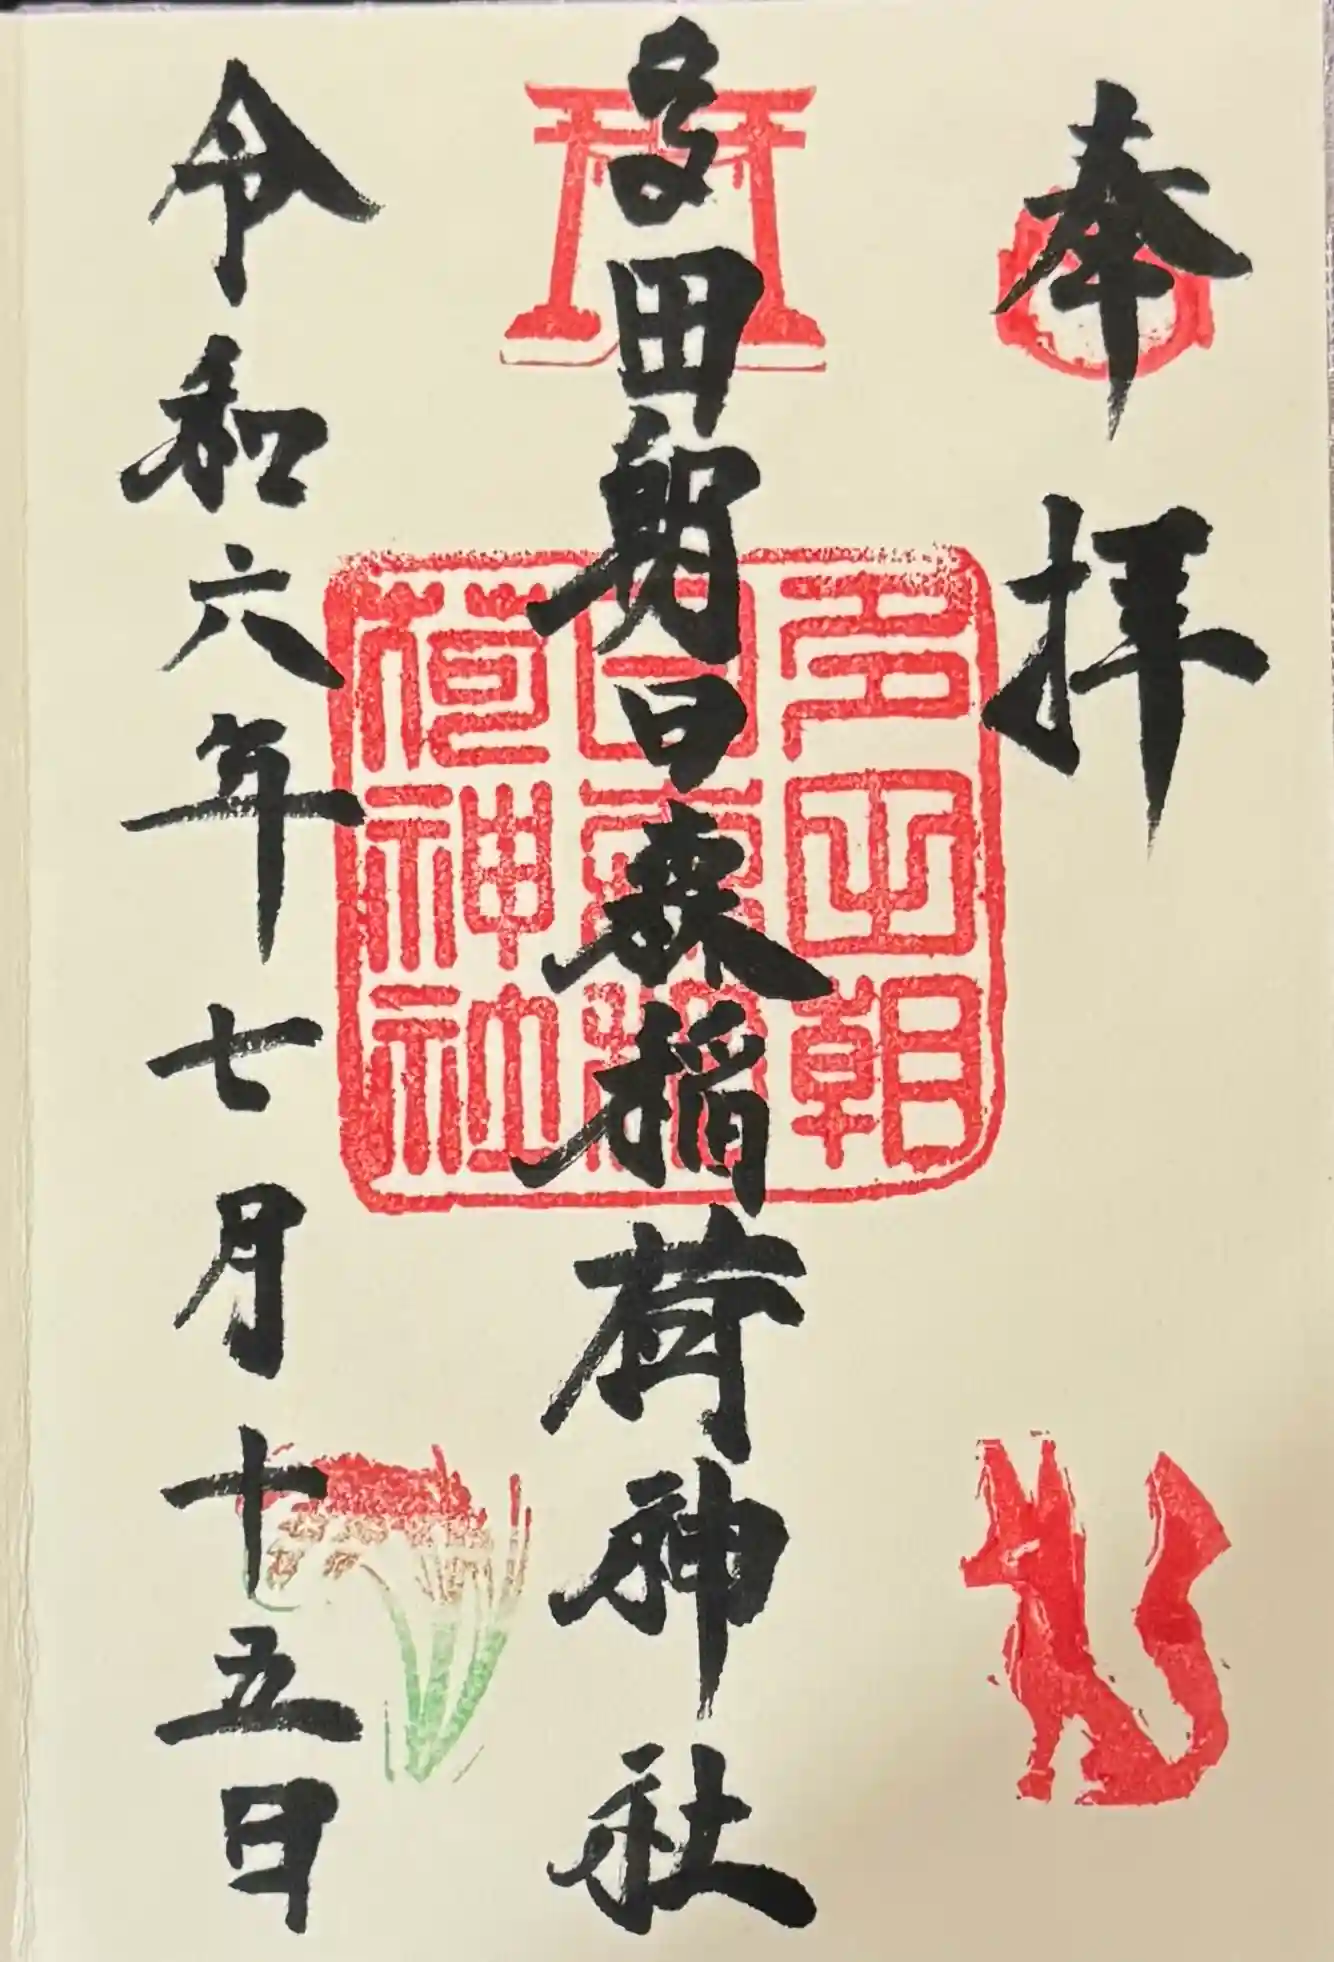 奉拝
多田朝日森稲荷神社
多田朝
日森稲
荷神社
令和六年七月十五日